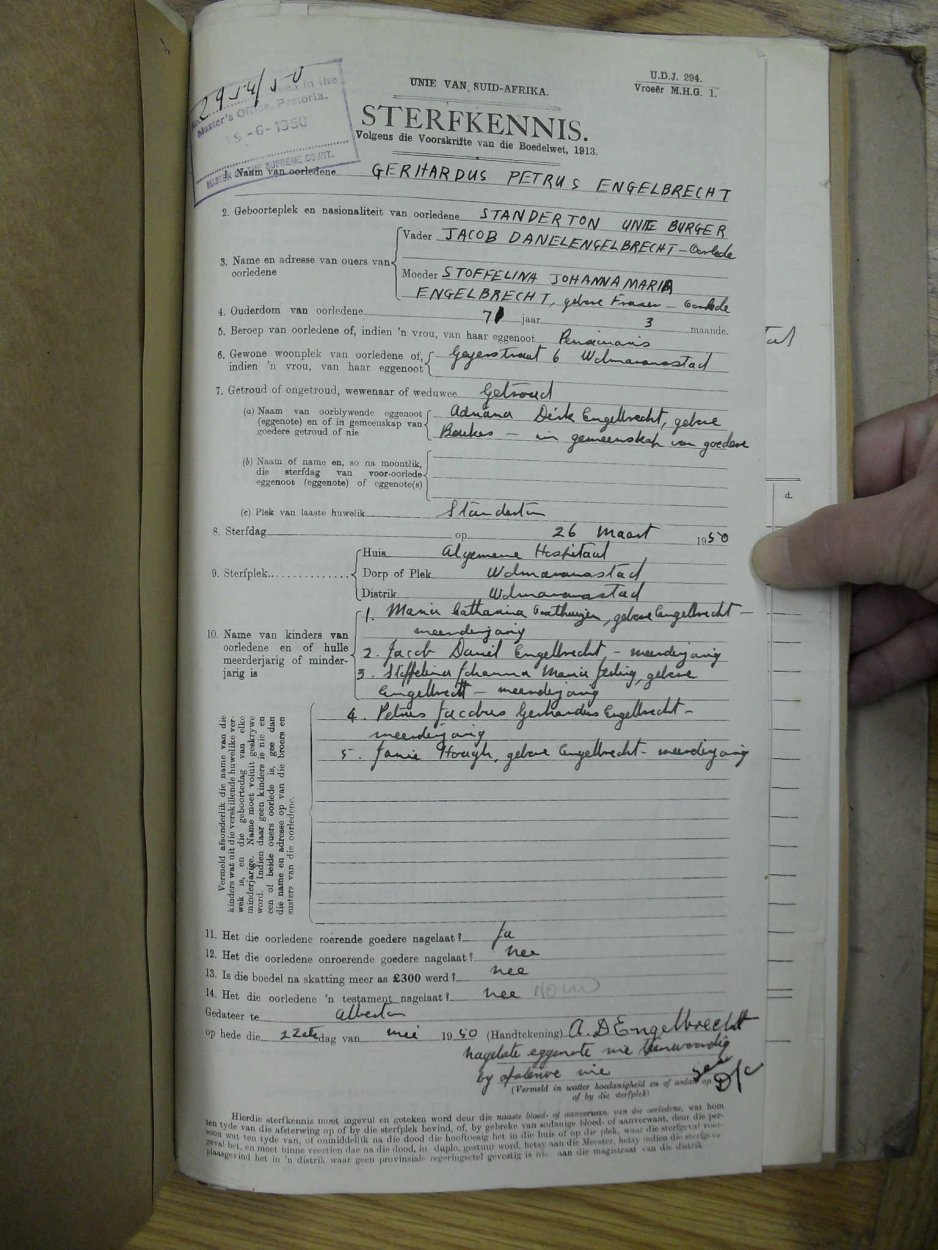 2954/50
Master's Office, Pretoria.
19-6-1950
MASTER OF THE SUPREME COURT.
U.D.J. 294.
Vroeër M.H.G. 1.
UNIE VAN SUID-AFRIKA.
STERFKENNIS.
Volgens die Voorskrifte van die Boedelwet, 1913.
1. Naam van oorledene GERHARDUS PETRUS ENGELBRECHT
2. Geboorteplek en nasionaliteit van oorledene STANDERTON UNIE BURGER
3. Name en adresse van ouers van oorledene
Vader JACOB DANELENGELBRECHT - Oorlede
Moeder STOFFELINA JOHANNA MARIA
ENGELBRECHT, gebore Fraser - Oorlede
4. Ouderdom van oorledene 71 jaar 3 maande.
5. Beroep van oorledene of, indien 'n vrou, van haar eggenoot Pensionaris
6. Gewone woonplek van oorledene of, Geyerstraat 6 Wolmaransstad
indien 'n vrou, van haar eggenoot
7. Getroud of ongetroud, wewenaar of weduwee Getroud
(a) Naam van oorblywende eggenoot Adriana Dirk Engelbrecht, gebore
(eggenote) en of in gemeenskap van
goedere getroud of nie Beukes - in gemeenskap van goedere
(b) Naam of name en, so na moontlik,
die sterfdag van voor-oorlede
eggenoot (eggenote) of eggenote(s)
(c) Plek van laaste huwelik Standerton
8. Sterfdag op 26 Maart 1950
9. Sterfplek
Huis Algemene Hospitaal
Dorp of Plek Wolmaransstad
Distrik Wolmaransstad
10. Name van kinders van
oorledene en of hulle
meerderjarig of minder-
jarig is
1. Maria Catharina Oosthuizen, gebore Engelbrecht -
meerderjarig
2. Jacob Daniel Engelbrecht - meerderjarig
3. Stoffelina Johanna Maria gebore
Engelbrecht - meerderjarig
4. Petrus Jacobus Gerhardus Engelbrecht -
meerderjarig
5. Janie Hough, gebore Engelbrecht - meerderjarig
Vermeld afsonderlik die name van die
kinders wat uit die verskillende huwelike ver-
wek is, en die geboortedag van elke
minderjarige. Name moet voluit geskrywe
word. Indien daar geen kinders is nie en
een of beide ouers oorlede is, gee dan
die name en adresse op van die broers en
susters van die oorledene.
11. Het die oorledene roerende goedere nagelaat? Ja
12. Het die oorledene onroerende goedere nagelaat? nee
13. Is die boedel na skatting meer as £300 werd? nee
14. Het die oorledene 'n testament nagelaat? nee
Gedateer te Alberton
op hede die 22ste dag van mei 1950 (Handtekening) A. D Engelbrecht
nagelate eggenote nie teenwoordig
by afsterwe nie
(Vermeld in watter hoedanigheid en of aldan op
of by die sterfplek)
Hierdie sterfkennis moet ingevul en geteken word deur die naaste bloed- of aanverwant van die oorledene, wat hom
ten tyde van die afsterwing op of by die sterfplek bevind, of, by gebreke van sodanige bloed- of aanverwant, deur die per-
soon wat ten tyde van, of onmiddelik na die dood die hooftoesig het in die huis of op die plek, waar die sterfgeval voor-
geval het, en moet binne veertien dae na die dood, in duplo, gestuur word, hetsy aan die Meester, hetsy indien die sterfgeval
plaasgevind het in 'n distrik waar geen provinsiale regeringsetel gevestig is nie aan die magistraat van die distrik
d.